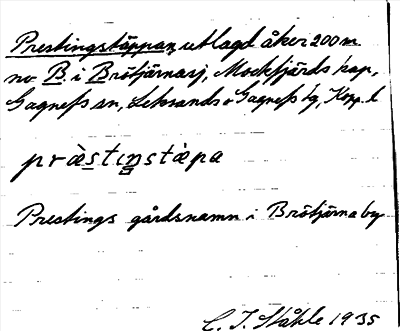 Prestingstäppan, utlagd åker 200 m
nv B. i Brötjärnasj, Mockfjärds kap,
Gagnefs sn, Leksands o Gagnefs tg, Kopp. l
præ̀stıŋstàpa
Prestings gårdsnamn i Brötjärna by
C. I. Ståhle 1935